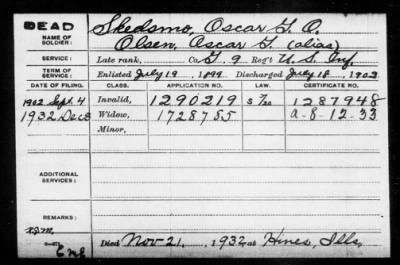 DEAD
NAME OF SOLDIER: Skedsmo, Oscar G. O.
Olsen, Oscar G. (alias)
SERVICE: Late rank, Co. G, 9 Reg't U.S. Inf.
TERM OF SERVICE: Enlisted July 19, 1899 Discharged July 18, 1902
DATE OF FILING. CLASS. APPLICATION NO. LAW. CERTIFICATE NO.
1902 Sept. 4 Invalid, 1290219 1287948
1932 Dec 8 Widow, 1728785 A-8-12-33
Minor,
ADDITIONAL SERVICES:
REMARKS:
Died Nov. 21, 1932 at Hines, Ills.